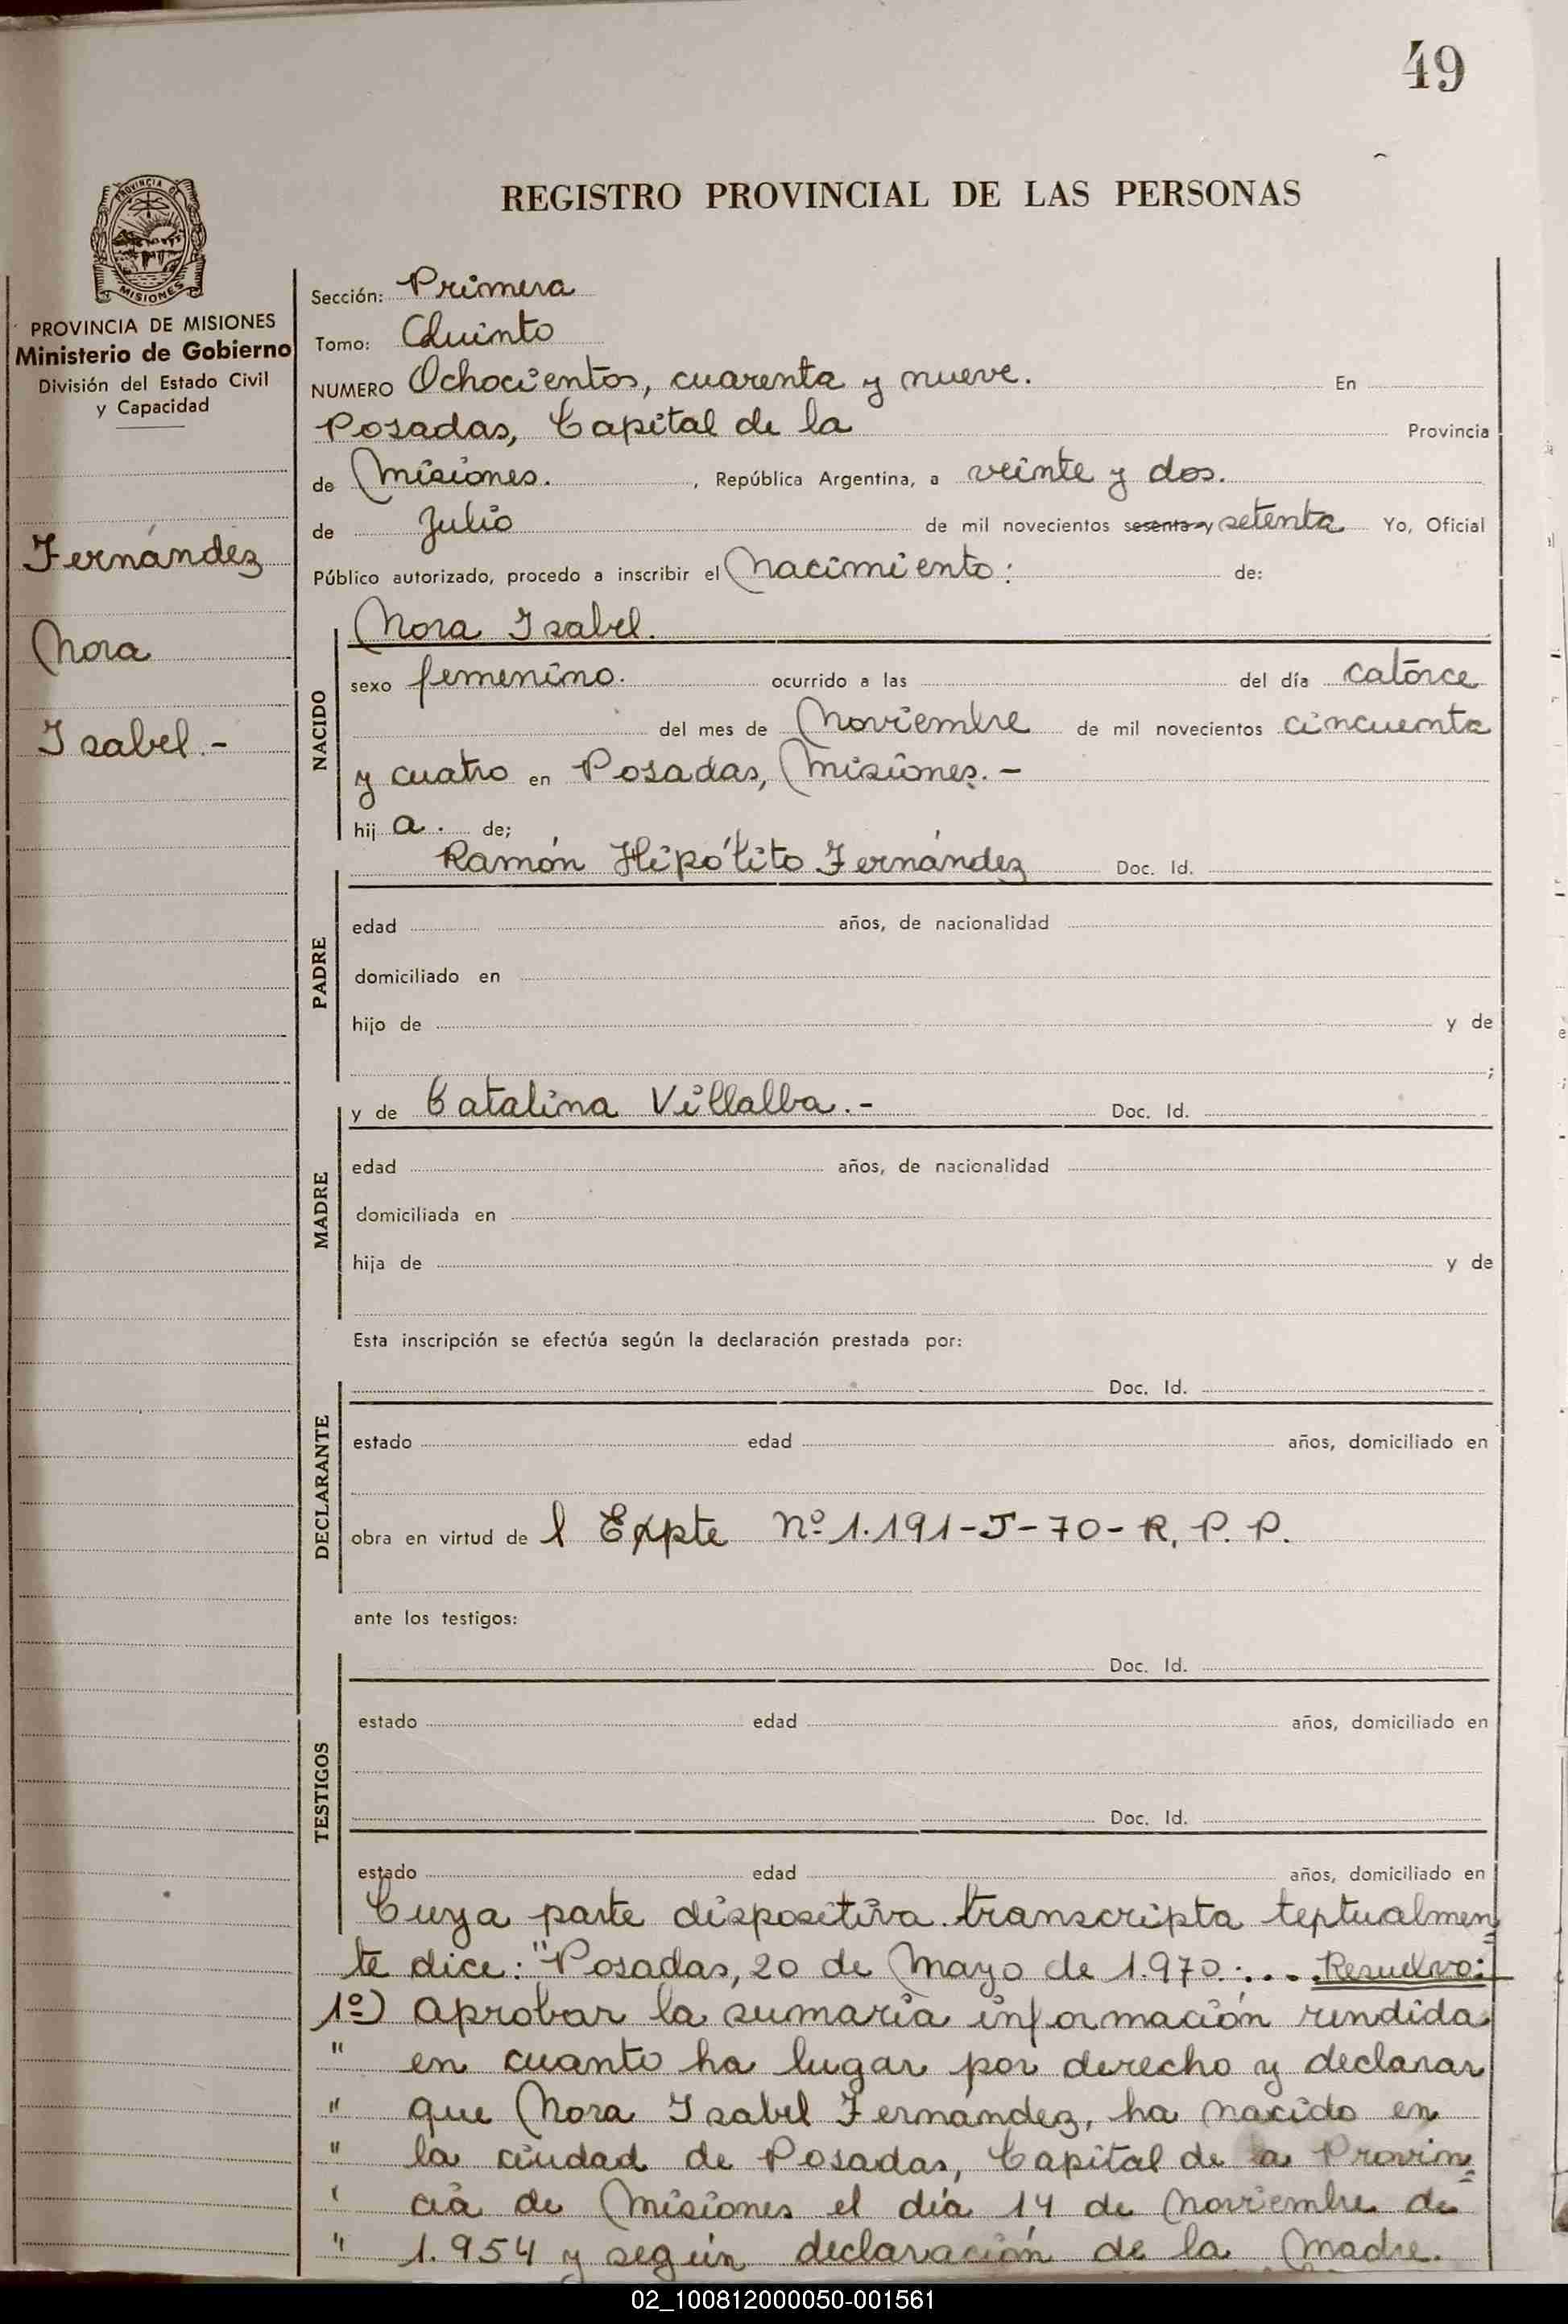 49
REGISTRO PROVINCIAL DE LAS PERSONAS
PROVINCIA DE
MISIONES
PROVINCIA DE MISIONES
Ministerio de Gobierno
División del Estado Civil
y Capacidad
Fernández
Nora
Isabel.-
Sección: Primera
Tomo: Quinto
NUMERO Ochocientos, cuarenta y nueve. En
Posadas, Capital de la Provincia
de Misiones. , República Argentina, a veinte y dos.
de Julio de mil novecientos sesenta y setenta Yo, Oficial
Público autorizado, procedo a inscribir el Nacimiento: de:
Nora Isabel.
NACIDO
sexo femenino. ocurrido a las del día catorce
del mes de Noviembre de mil novecientos cincuenta
y cuatro en Posadas, Misiones.-
hij a. de;
Ramón Hipólito Fernández Doc. Id.
PADRE
edad años, de nacionalidad
domiciliado en
hijo de y de
;
y de Catalina Villalba.- Doc. Id.
MADRE
edad años, de nacionalidad
domiciliada en
hija de y de
Esta inscripción se efectúa según la declaración prestada por:
Doc. Id.
DECLARANTE
estado edad años, domiciliado en
obra en virtud de l Expte Nº 1.191-J-70-R. P. P.
ante los testigos:
Doc. Id.
TESTIGOS
estado edad años, domiciliado en
Doc. Id.
estado edad años, domiciliado en
Cuya parte dispositiva transcripta textualmen
te dice: "Posadas, 20 de Mayo de 1.970.... Resuelvo:
1º) Aprobar la sumaria información rendida
" en cuanto ha lugar por derecho y declarar
" que Nora Isabel Fernández, ha nacido en
" la ciudad de Posadas, Capital de la Provin
" cia de Misiones el día 14 de Noviembre de
" 1.954 y según declaración de la Madre.
02_100812000050-001561